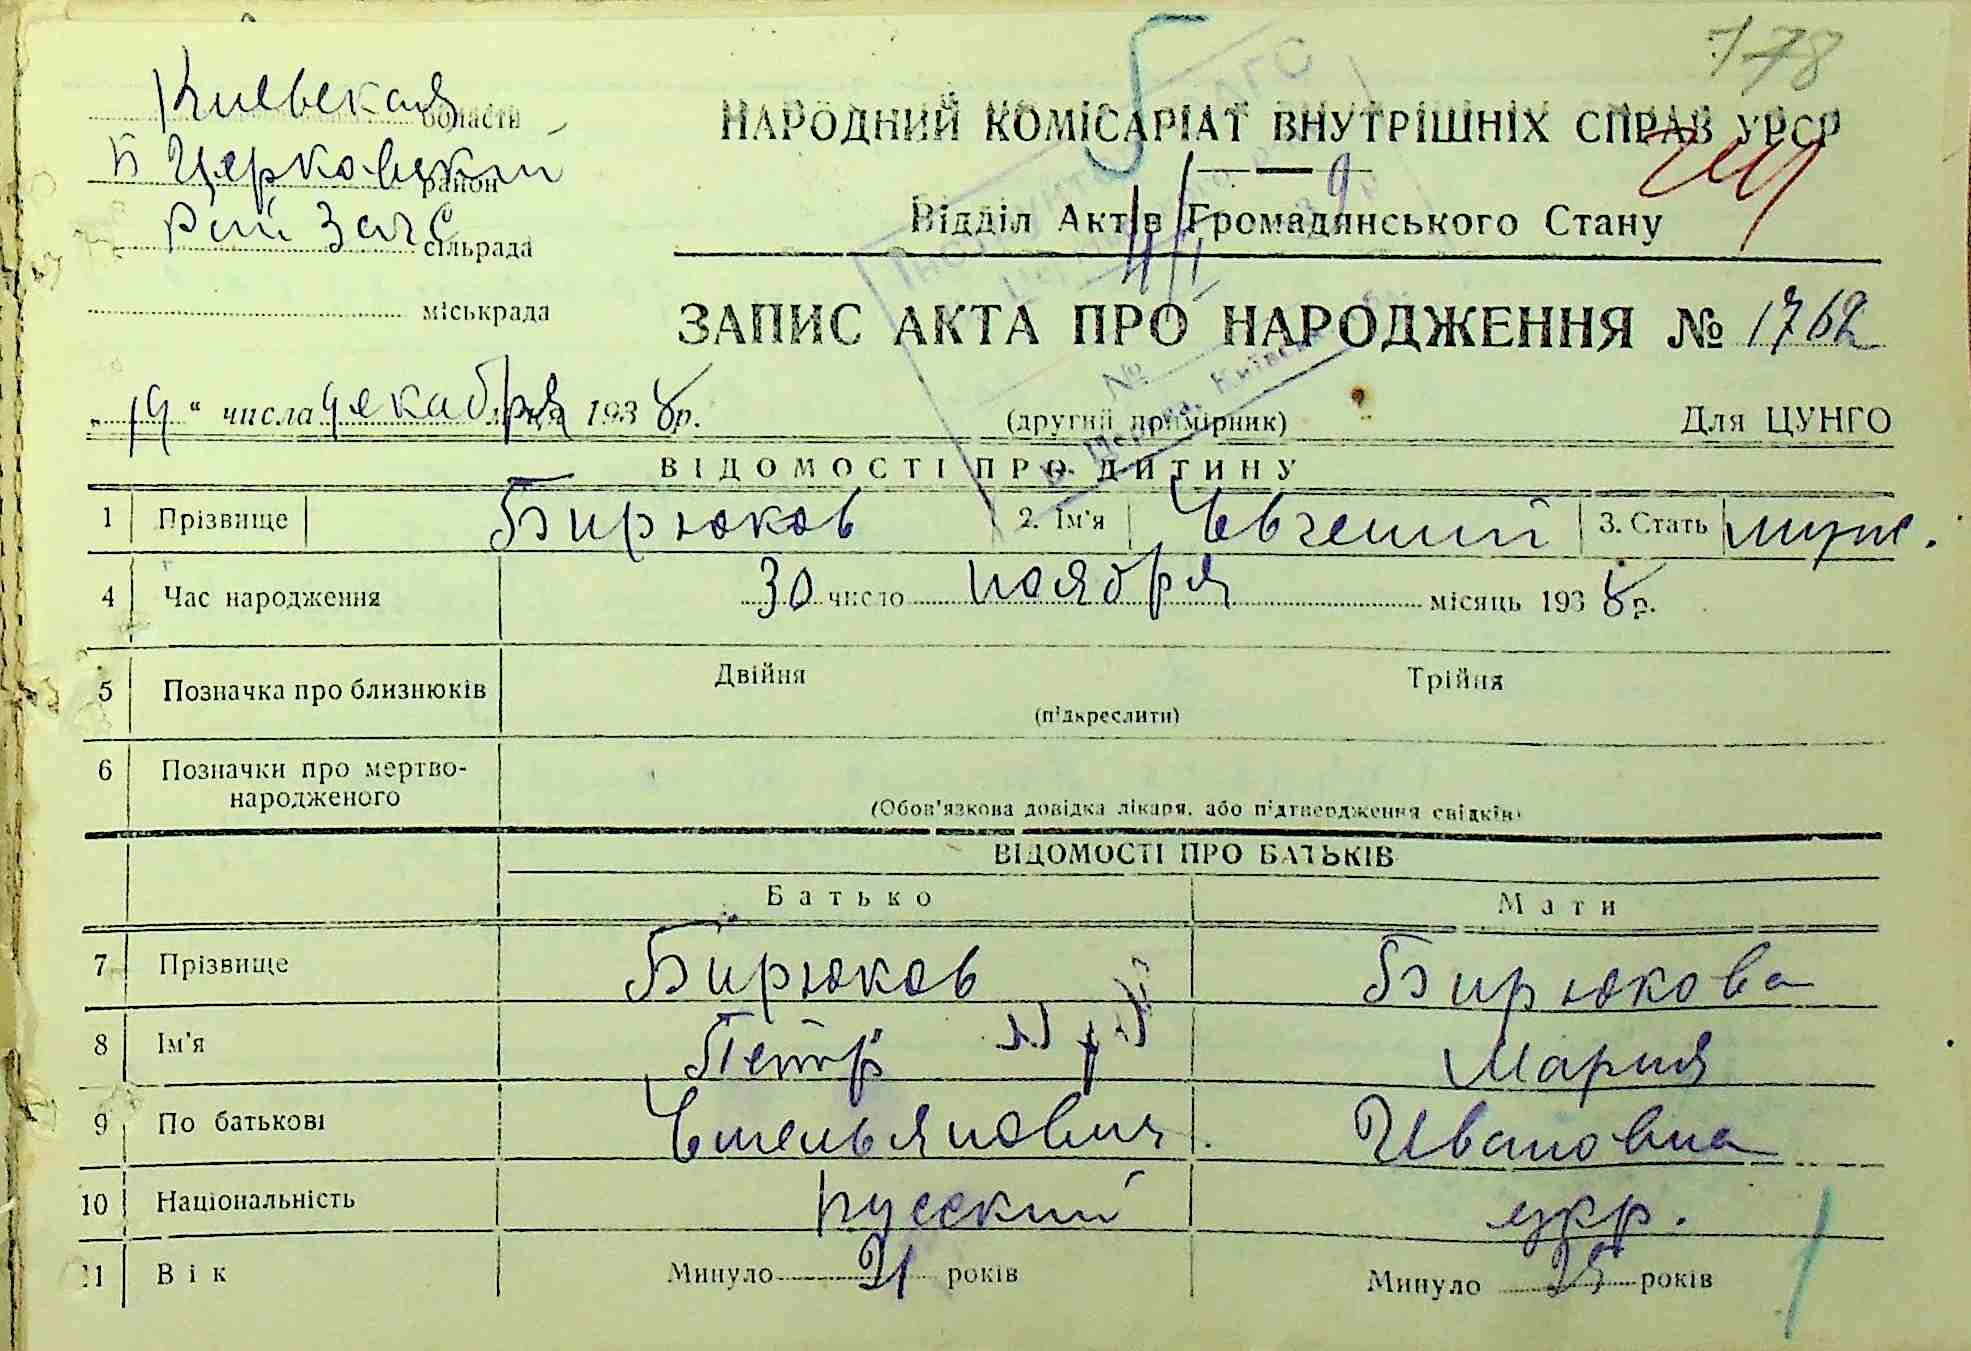 178
Киевская області
Б Церковский район
Рай Загс сільрада
міськрада
НАРОДНИЙ КОМІСАРІАТ ВНУТРІШНІХ СПРАВ УРСР
Відділ Актів Громадянського Стану
ЗАПИС АКТА ПРО НАРОДЖЕННЯ № 1762
„19“ числа декабря 1938р.
(другий примірник)
Для ЦУНГО
ВІДОМОСТІ ПРО ДИТИНУ
1 Прізвище Бирюков 2. Ім'я Евгений 3. Стать муж.
4 Час народження 30 число ноября місяць 1938р.
5 Позначка про близнюків Двійня Трійня
(підкреслити)
6 Позначки про мертво-
народженого
(Обов'язкова довідка лікаря, або підтвердження свідків)
ВІДОМОСТІ ПРО БАТЬКІВ
Батько Мати
7 Прізвище Бирюков Бирюкова
8 Ім'я Петр Мария
9 По батькові Емельянович Ивановна
10 Національність русский укр.
11 Вік Минуло 21 років Минуло 25 років